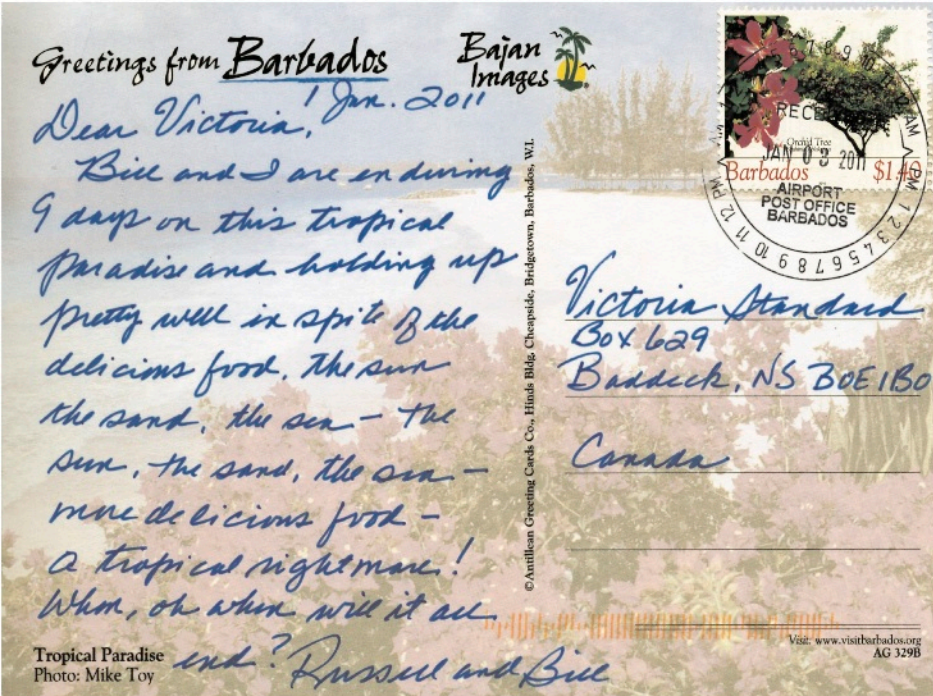 Greetings from Barbados
Bajan
Images
1 Jan. 2011
Dear Victoria,
Bill and I are enduring
9 days on this tropical
paradise and holding up
pretty well in spite of the
delicious food, the sun
the sand, the sea – the
sun, the sand, the sea –
more delicious food –
a tropical nightmare!
When, oh when will it all
end? Russell and Bill
Tropical Paradise
Photo: Mike Toy
©Antillean Greeting Cards Co., Hinds Bldg, Cheapside, Bridgetown, Barbados, W.I.
Orchid Tree
Barbados $1.40
JAN 03 2011
AIRPORT
POST OFFICE
BARBADOS
AM
PM 1 2 3 4 5 6 7 8 9 10 11 12 PM
Victoria Standard
Box 629
Baddeck, NS B0E 1B0
Canada
Visit: www.visitbarbados.org
AG 329B